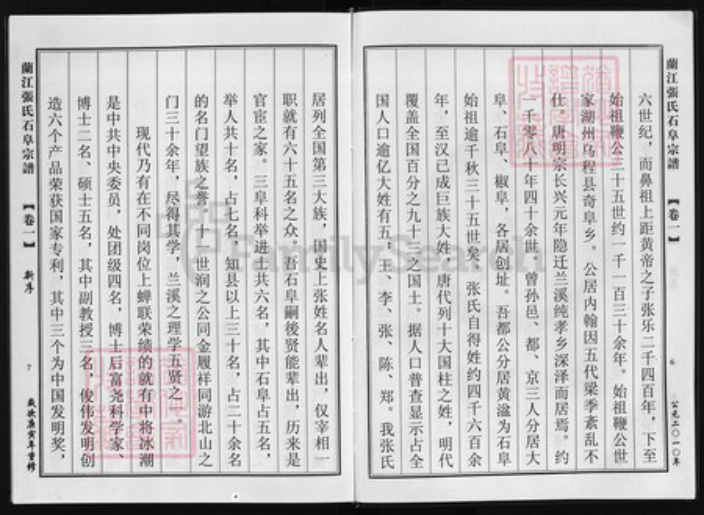 蘭江張氏石阜宗譜
【卷一】
6
公元二〇一〇年
六世纪，而鼻祖上距黄帝之子张乐二千四百年，下至
始祖鞭公三十五世约一千一百三十余年。始祖鞭公世
家湖州乌程县奇阜乡。公居内翰因五代梁季紊乱不
仕，唐明宗长兴元年隐迁兰溪纯孝乡深泽而居焉。约
一千零八十年四十余世。曾孙邑、都、京三人分居大
阜、石阜、椒阜，各居创址。吾都公分居黄湓为石阜
始祖逾千秋三十五世矣。张氏自得姓约四千六百余
年，至汉已成巨族大姓，唐代列十大国柱之姓，明代
覆盖全国百分之九十三之国土。据人口普查显示占全
国人口逾亿大姓有五：王、李、张、陈、郑。我张氏
居列全国第三大族，国史上张姓名人辈出，仅宰相一
职就有六十五名之众。吾石阜嗣後贤能辈出，历来是
官宦之家。三阜科举进士共六名，其中石阜占五名，
举人共十名，占七名。知县以上三十名，占二十余名
的名门望族之誉。十一世润之公同金履祥同游北山之
门三十余年，尽得其学，兰溪之理学五贤之一。
现代乃有在不同岗位上蝉联荣绩的就有中将冰潮
是中共中央委员，处团级四名，博士后富尧科学家、
博士二名、硕士五名，其中副教授三名，俊伟发明创
造六个产品荣获国家专利，其中三个为中国发明奖，
蘭江張氏石阜宗譜
【卷一】
新序
7
歲次庚寅年重修
FamilySearch